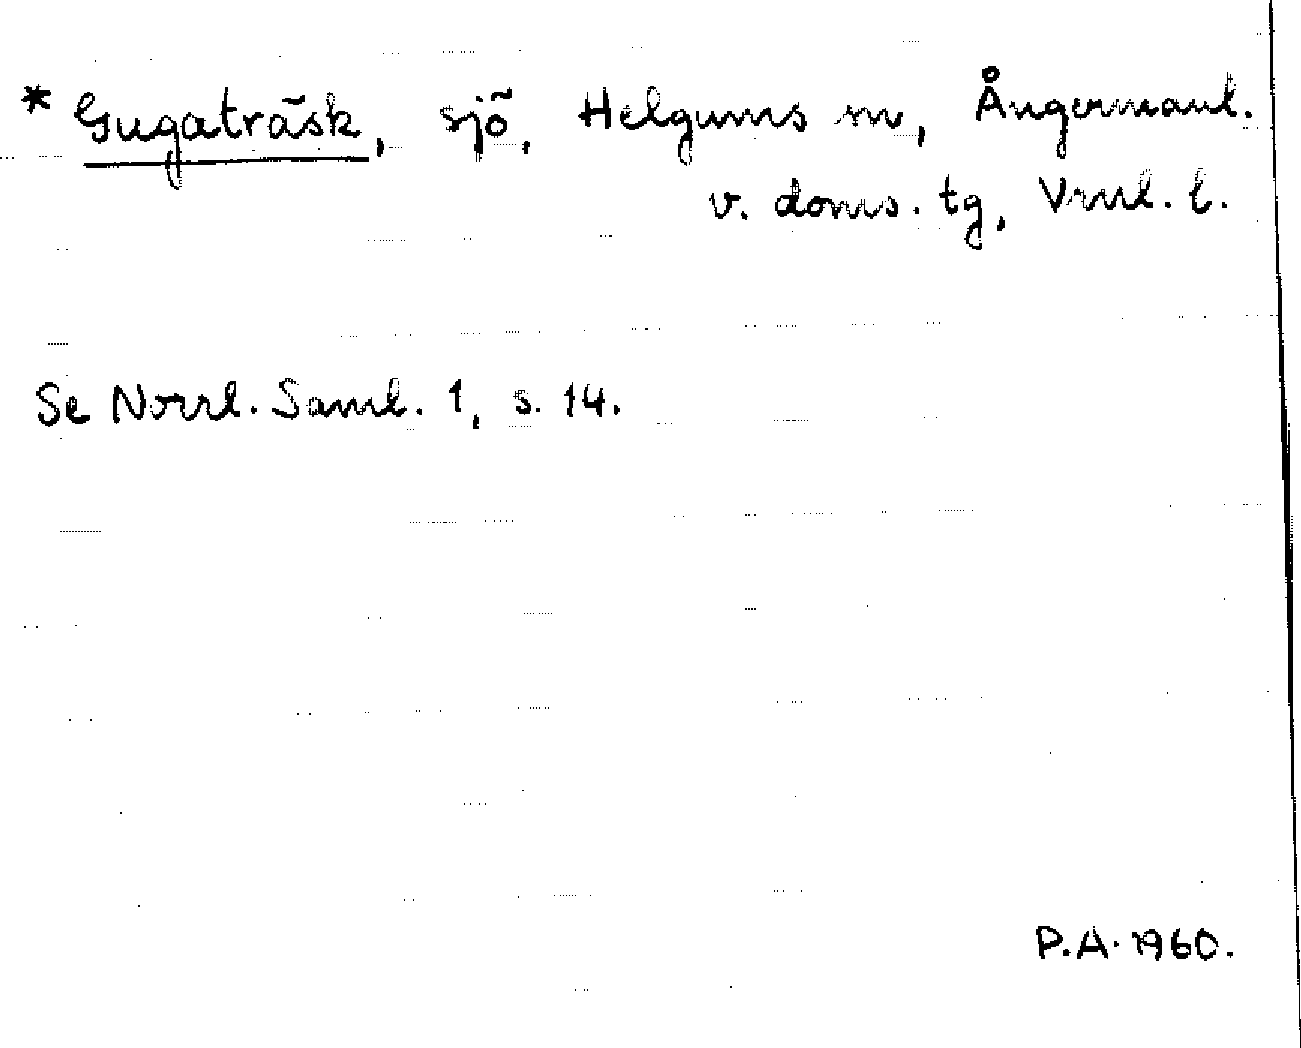 * Gugaträsk, sjö, Helgums sn, Ångermanl.
v. doms. tg, Vrnl. l.
Se Norrl. Saml. 1, s. 14.
P.A. 1960.